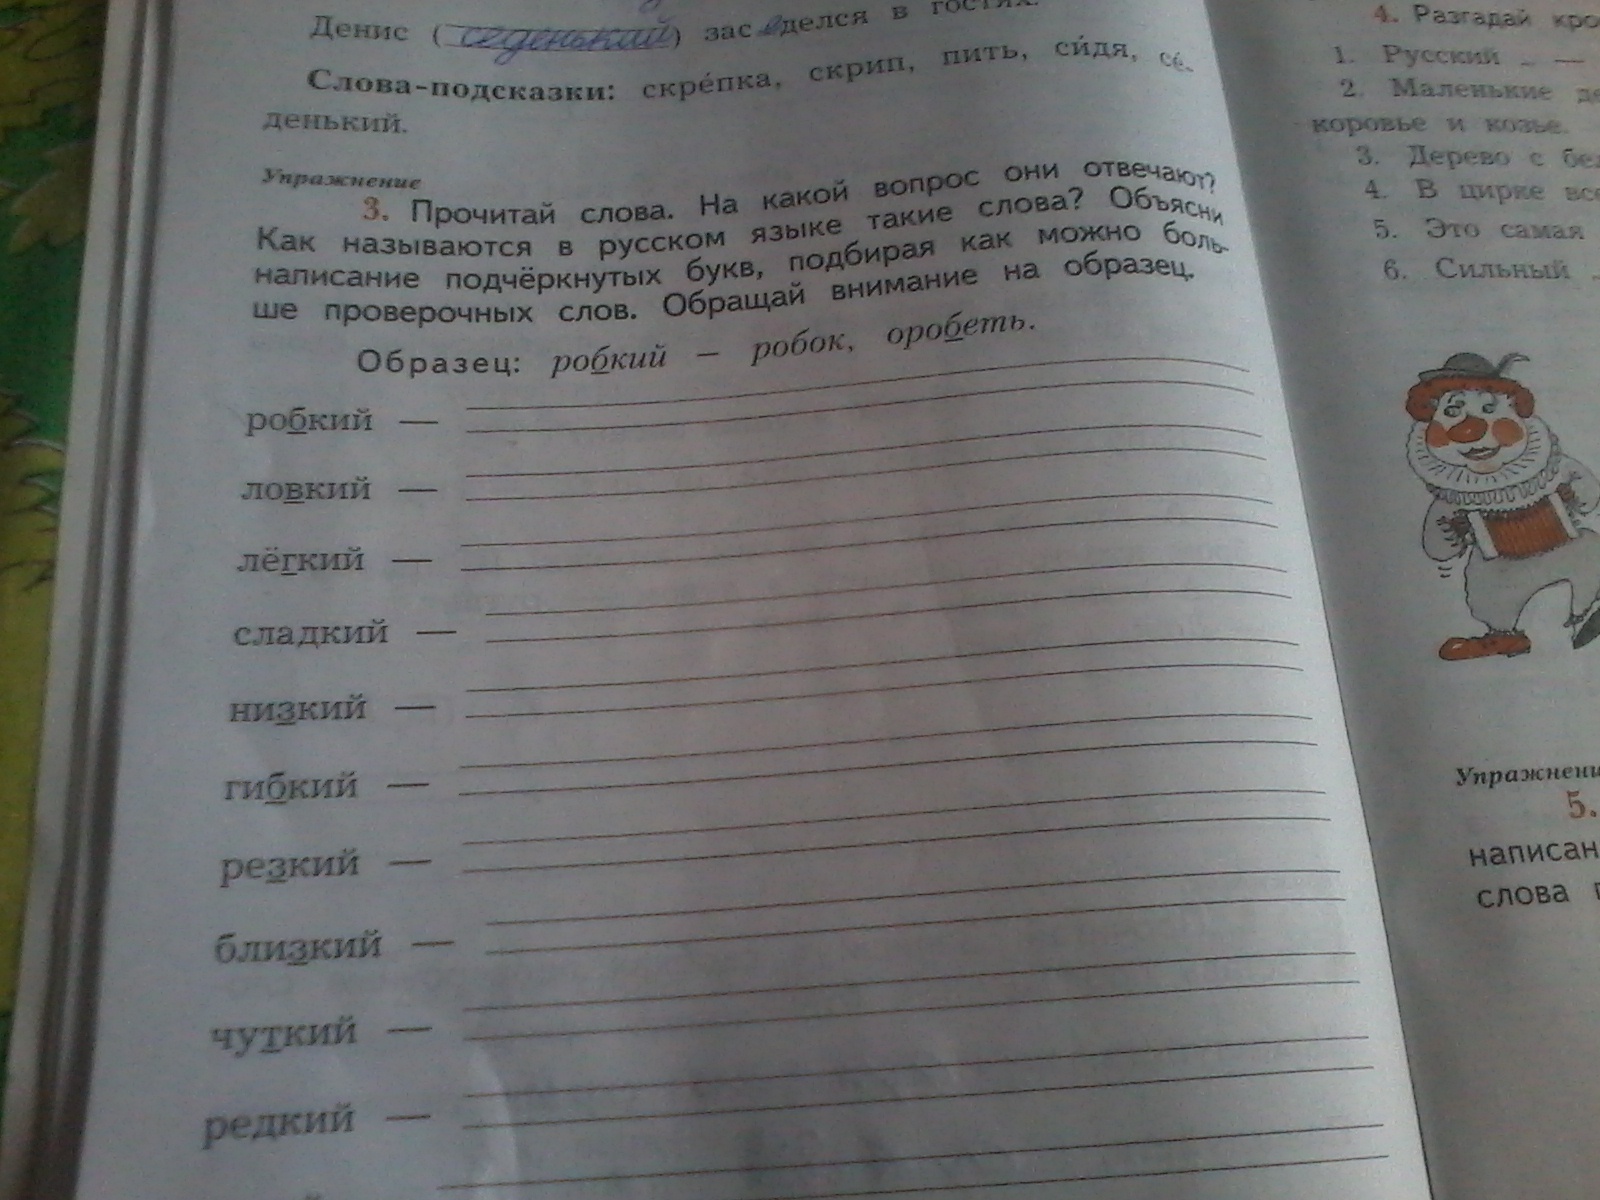 Денис (седенький) зас едделся в гостях.
Слова-подсказки: скрéпка, скрип, пить, си́дя, сé-
денький.
Упражнение
3. Прочитай слова. На какой вопрос они отвечают?
Как называются в русском языке такие слова? Объясни
написание подчёркнутых букв, подбирая как можно боль-
ше проверочных слов. Обращай внимание на образец.
Образец: робкий — робок, оробеть.
робкий —
ловкий —
лёгкий —
сладкий —
низкий —
гибкий —
резкий —
близкий —
чуткий —
редкий —
4. Разгадай кро
1. Русский
2. Маленькие де
коровье и козье.
3. Дерево с бел
4. В цирке все
5. Это самая
6. Сильный
Упражнени
5.
написан
слова п